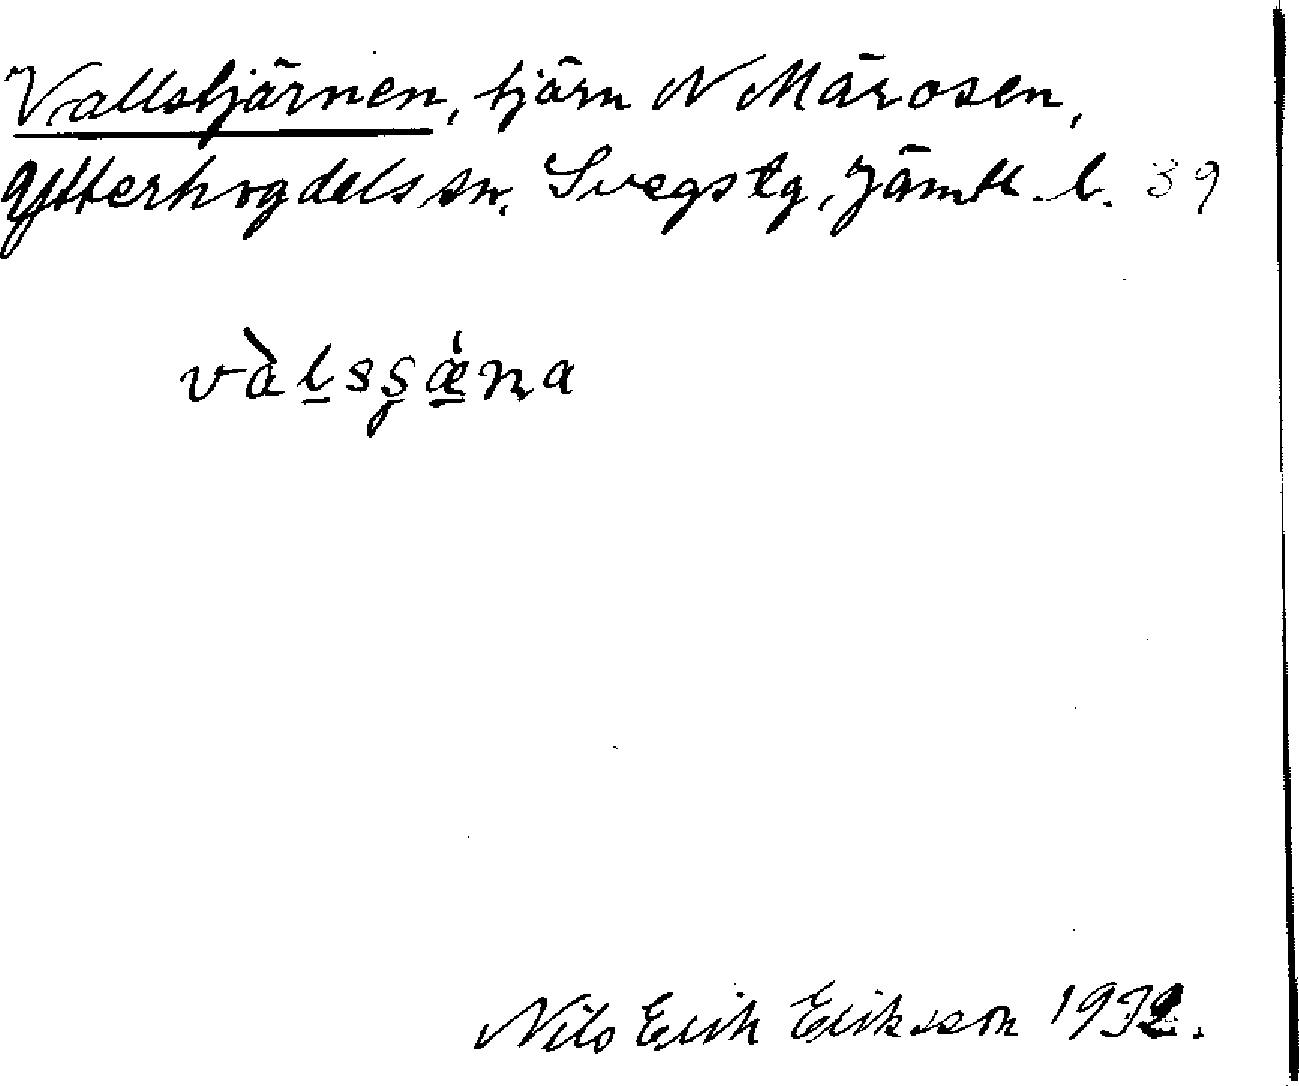 Vallstjärnen, tjärn N Märosen,
Ytterhogdels sn, Svegs tg, Jämtl. l. 39
vàl̠sş́æ̠na
Nils Erik Eriksson 1932.